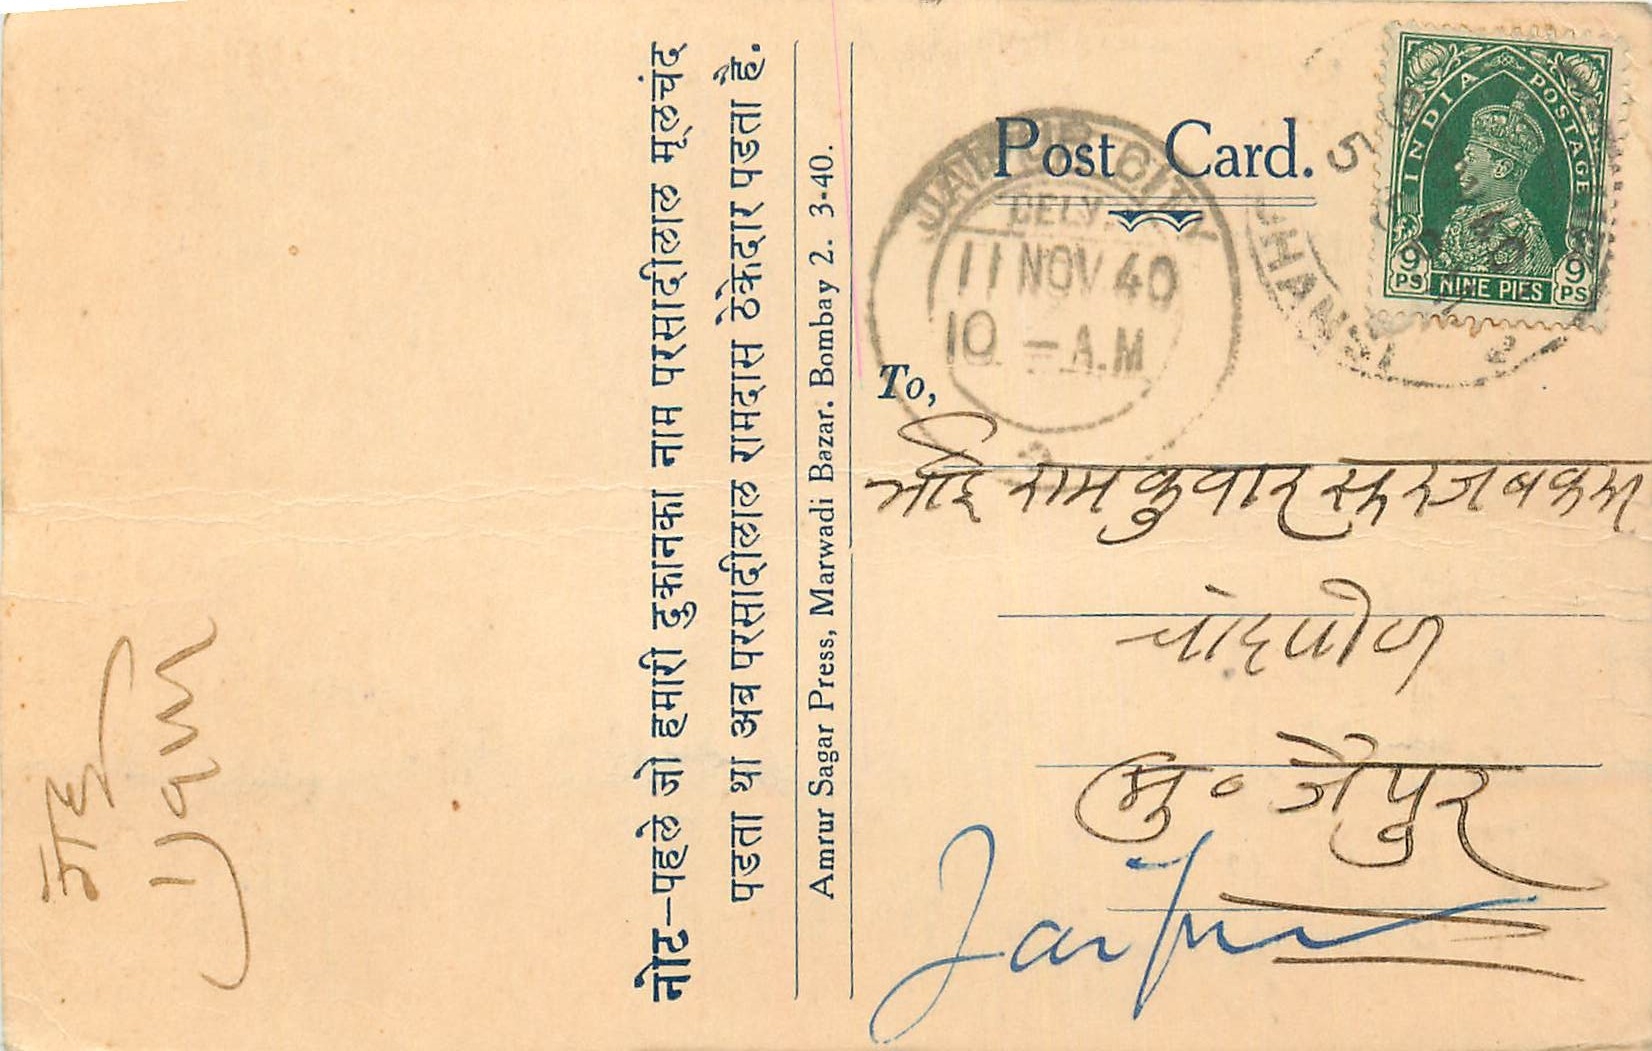 नोट-पहले जो हमारी दुकानका नाम परसादीलाल मूलचंद
पडता था अब परसादीलाल रामदास ठेकेदार पडता है.
Amrur Sagar Press, Marwadi Bazar. Bombay 2. 3-40.
Post Card.
INDIA POSTAGE
9 PS NINE PIES 9 PS
JHANSI
5
2
JAIPUR CITY
DELY.
11 NOV 40
10 - A.M
To,
भाई रामकुवार
चांदपोल
मु० जैपुर
Jaipur